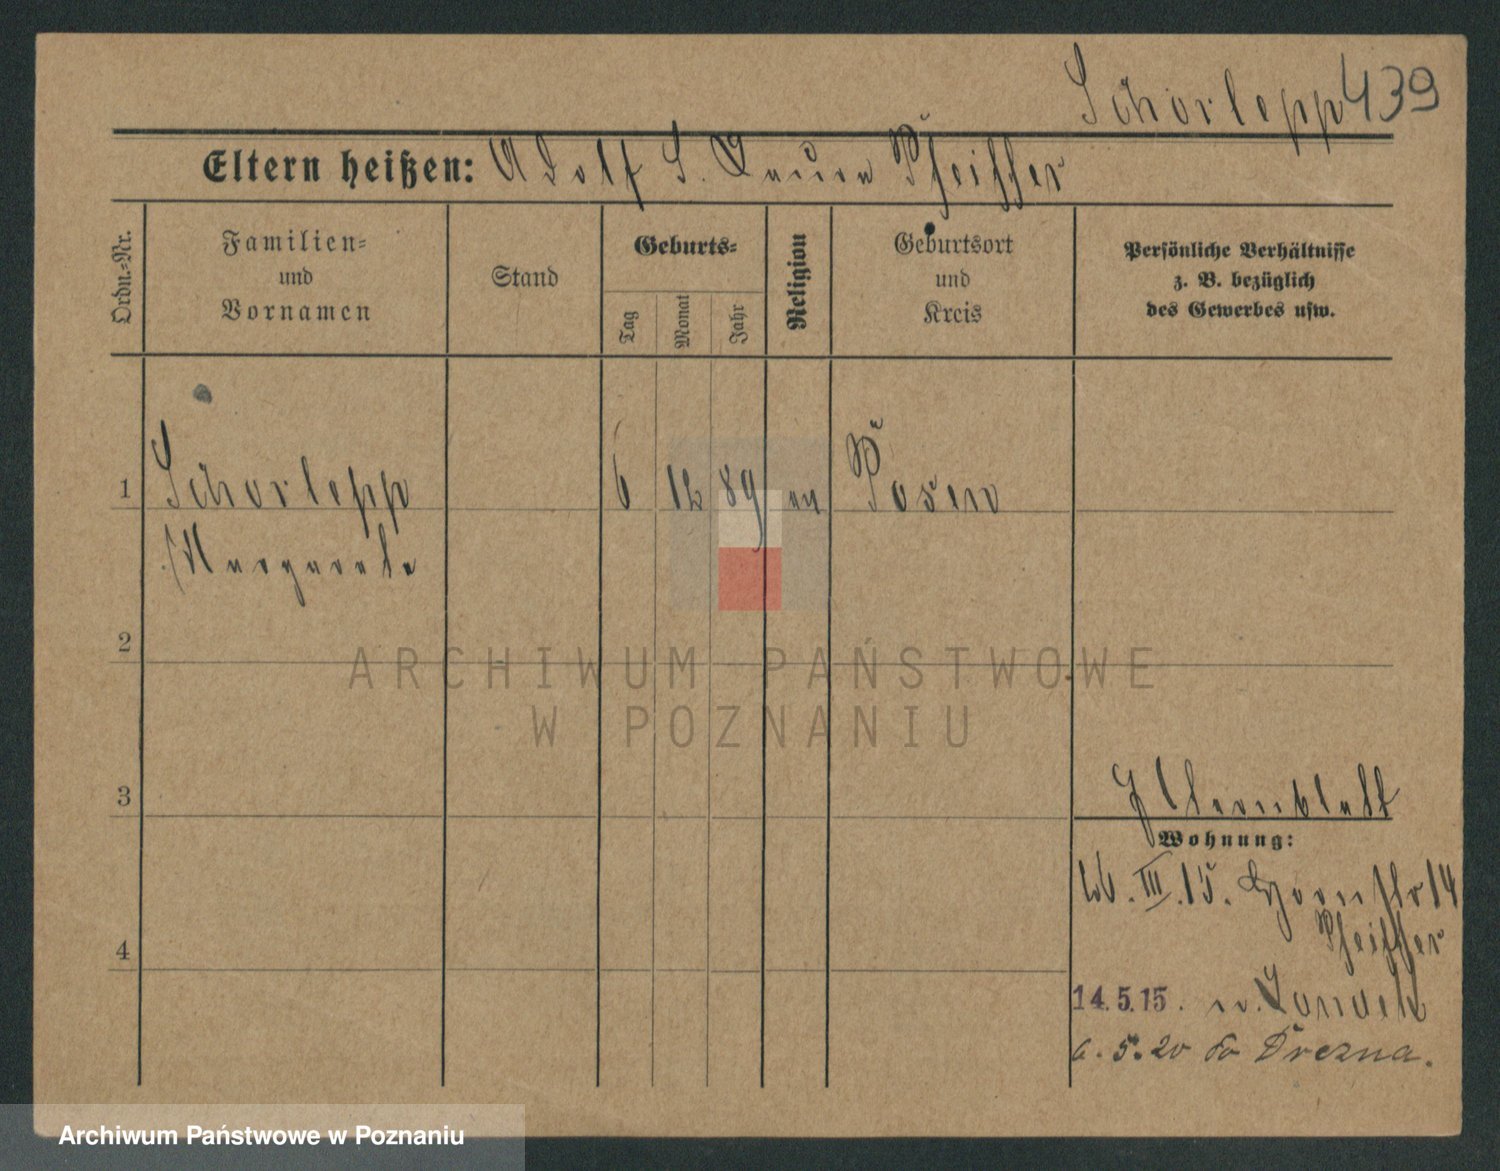 Schorlepp 439
Eltern heißen: Adolf S. Laura Pfeiffer
Ordn.-Nr.
Familien-
und
Vornamen
Stand
Geburts-
Tag
Monat
Jahr
Religion
Geburtsort
und
Kreis
Persönliche Verhältnisse
z. B. bezüglich
des Gewerbes usw.
1 Schorlepp 6 12 89 ev Posen
Margarete
2
3
Wohnung:
26. III. 15. 14
Pfeiffer
4
14.5.15. n. Landeck
6. 5. 20 do Drezna.
ARCHIWUM PAŃSTWOWE
W POZNANIU
Archiwum Państwowe w Poznaniu